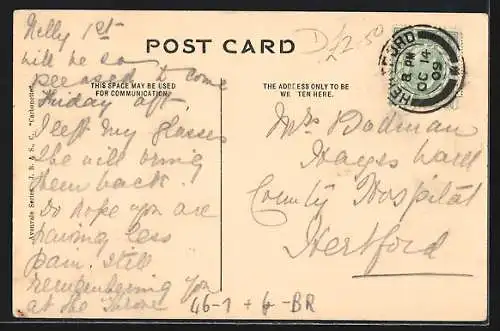 Nelly 1st
will be so
pleased to come
Friday aft.
I left my glasses
She will bring
them back.
Do hope you are
having less
pain. Still
remembering you
at the Throne
POST CARD
THIS SPACE MAY BE USED
FOR COMMUNICATION.
THE ADDRESS ONLY TO BE
WRITTEN HERE.
D £2-50
HERTFORD
8 PM
OC 14
09
Mrs Bodman
Hayes Ward
County Hospital
Hertford
46-1 + 6 -BR
Avonvale Series. J. B. & S., C. "Carbonette."